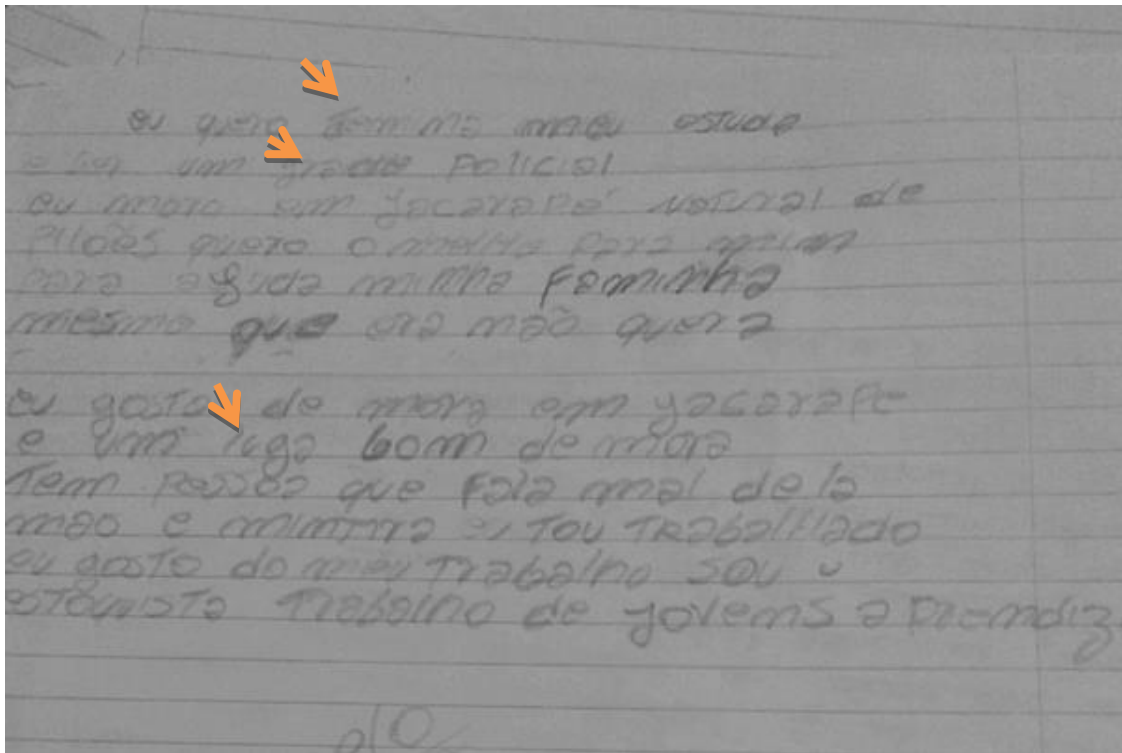 eu quero temina meu estuda
e ser um grade Policial
eu moro em Jacarapé natural de
Pilões quero o melho para mim
para aguda minha Faminha
mesmo que era não quera
eu gosto de mora em Jacarape
e um luga bom de mora
Tem Pessoa que Fala mal de la
mao e mimtira eu TOU TRabalhado
eu gosto do meu Trabalho sou
estoquista Trabalho de Jovems a Premdiz